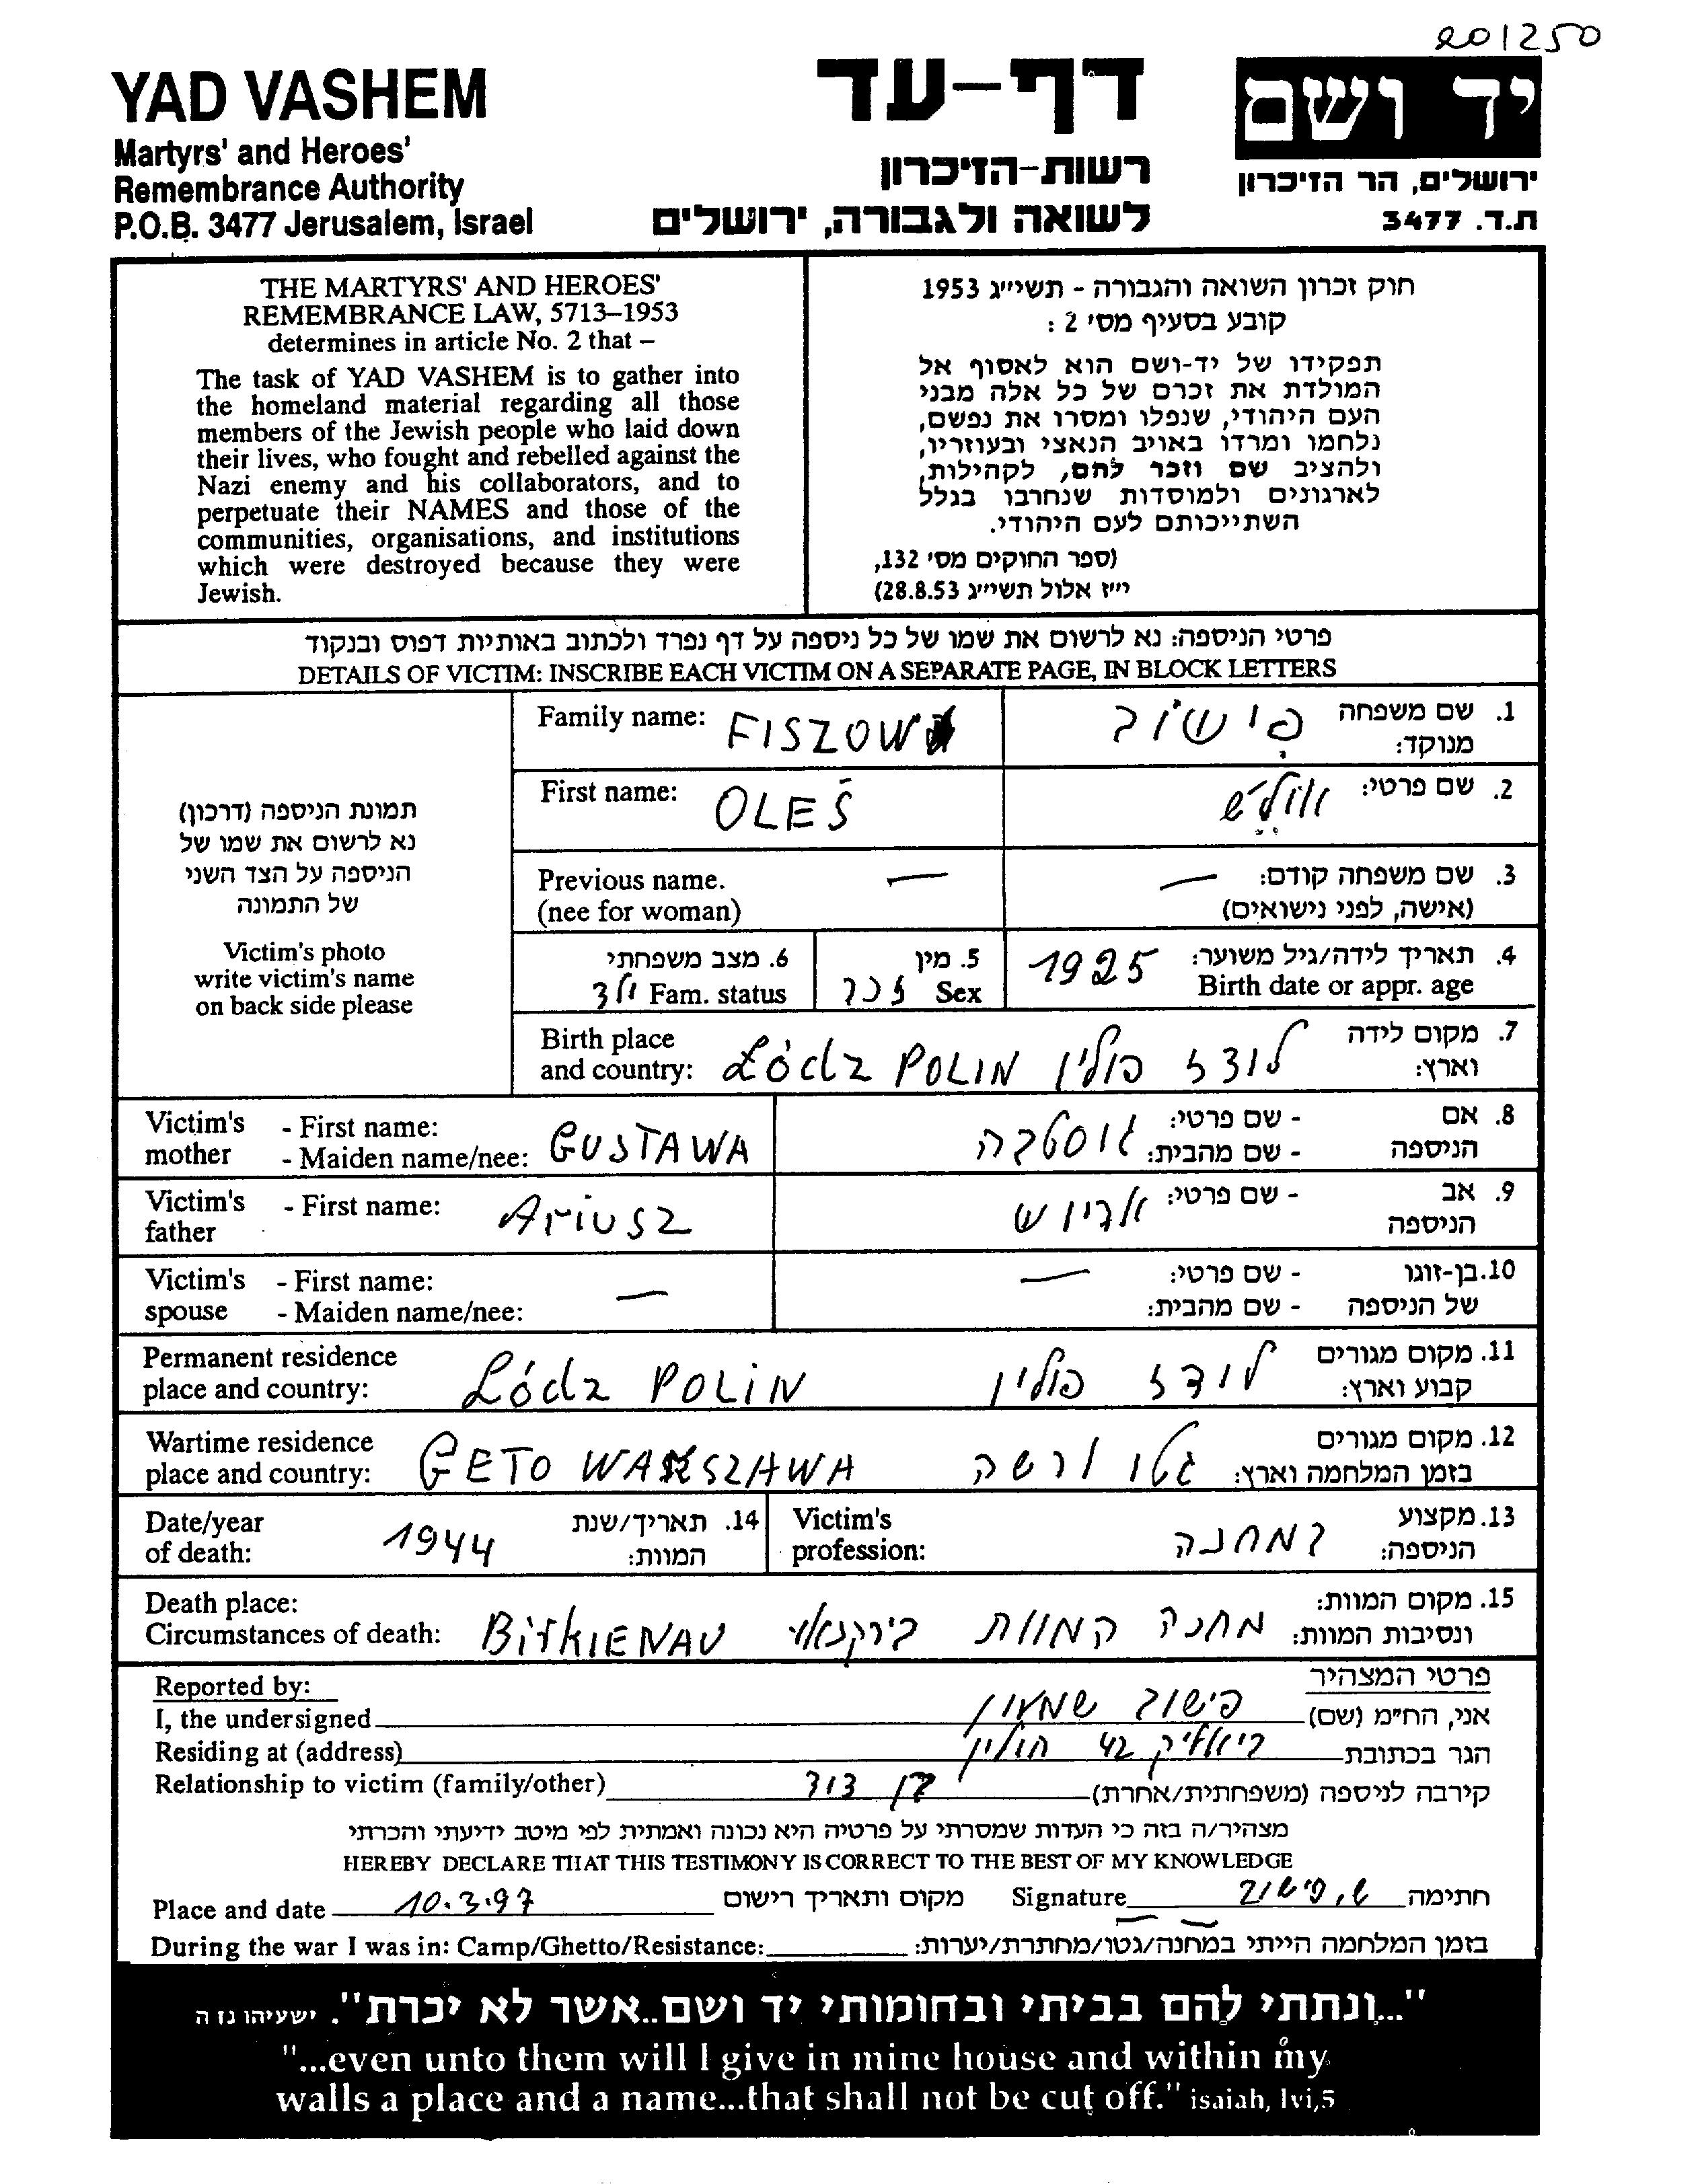 201250
YAD VASHEM
Martyrs' and Heroes'
Remembrance Authority
P.O.B. 3477 Jerusalem, Israel
דף-עד
רשות-הזיכרון
לשואה ולגבורה, ירושלים
יד ושם
ירושלים, הר הזיכרון
ת.ד. 3477
THE MARTYRS' AND HEROES'
REMEMBRANCE LAW, 5713–1953
determines in article No. 2 that –
The task of YAD VASHEM is to gather into
the homeland material regarding all those
members of the Jewish people who laid down
their lives, who fought and rebelled against the
Nazi enemy and his collaborators, and to
perpetuate their NAMES and those of the
communities, organisations, and institutions
which were destroyed because they were
Jewish.
חוק זכרון השואה והגבורה - תשי״ג 1953
קובע בסעיף מס׳ 2 :
תפקידו של יד-ושם הוא לאסוף אל
המולדת את זכרם של כל אלה מבני
העם היהודי, שנפלו ומסרו את נפשם,
נלחמו ומרדו באויב הנאצי ובעוזריו,
ולהציב שם וזכר להם, לקהילות,
לארגונים ולמוסדות שנחרבו בגלל
השתייכותם לעם היהודי.
(ספר החוקים מס׳ 132,
י״ז אלול תשי״ג 28.8.53)
פרטי הניספה: נא לרשום את שמו של כל ניספה על דף נפרד ולכתוב באותיות דפוס ובנקוד
DETAILS OF VICTIM: INSCRIBE EACH VICTIM ON A SEPARATE PAGE, IN BLOCK LETTERS
תמונת הניספה (דרכון)
נא לרשום את שמו של
הניספה על הצד השני
של התמונה
Victim's photo
write victim's name
on back side please
Family name: FISZOW פישוב 1. שם משפחה
מנוקד:
First name: OLEŚ אולש 2. שם פרטי:
Previous name. — — 3. שם משפחה קודם:
(nee for woman) (אישה, לפני נישואים)
6. מצב משפחתי 5. מין 1925 4. תאריך לידה/גיל משוער:
ילד Fam. status זכר Sex Birth date or appr. age
Birth place 7. מקום לידה
and country: Łódz POLIN לודז פולין וארץ:
Victim's - First name: - שם פרטי: 8. אם
mother - Maiden name/nee: GUSTAWA גוסטבה - שם מהבית: הניספה
Victim's - First name: Ariusz אריוש - שם פרטי: 9. אב
father הניספה
Victim's - First name: — — - שם פרטי: 10. בן-זוגו
spouse - Maiden name/nee: - שם מהבית: של הניספה
Permanent residence 11. מקום מגורים
place and country: Łódz POLIN לודז פולין קבוע וארץ:
Wartime residence 12. מקום מגורים
place and country: GETO WARSZAWA גטו ורשה בזמן המלחמה וארץ:
Date/year 1944 14. תאריך/שנת Victim's 13. מקצוע
of death: המוות: profession: במחנה הניספה:
Death place: 15. מקום המוות:
Circumstances of death: BirkIENAU מחנה המוות בירקנאו ונסיבות המוות:
Reported by: פרטי המצהיר
I, the undersigned פישוב שמעון אני, הח״מ (שם)
Residing at (address) ביאליק 42 חולון הגר בכתובת
Relationship to victim (family/other) בן דוד קירבה לניספה (משפחתית/אחרת)
מצהיר/ה בזה כי העדות שמסרתי על פרטיה היא נכונה ואמתית לפי מיטב ידיעתי והכרתי
HEREBY DECLARE THAT THIS TESTIMONY IS CORRECT TO THE BEST OF MY KNOWLEDGE
Place and date 10.3.97 מקום ותאריך רישום Signature ש. פישוב חתימה
During the war I was in: Camp/Ghetto/Resistance: בזמן המלחמה הייתי במחנה/גטו/מחתרת/יערות:
"...ונתתי להם בביתי ובחומותי יד ושם..אשר לא יכרת". ישעיהו נז ה
"...even unto them will I give in mine house and within my
walls a place and a name...that shall not be cut off." isaiah, lvi,5